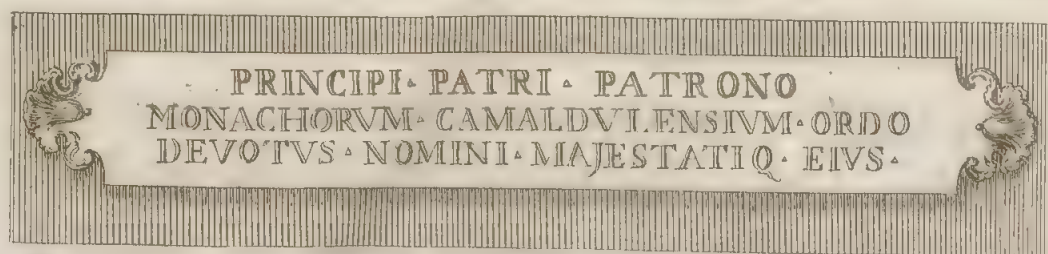 PRINCIPI · PATRI · PATRONO
MONACHORVM · CAMALDVLENSIVM · ORDO
DEVOTVS · NOMINI · MAJESTATIQ · EIVS ·